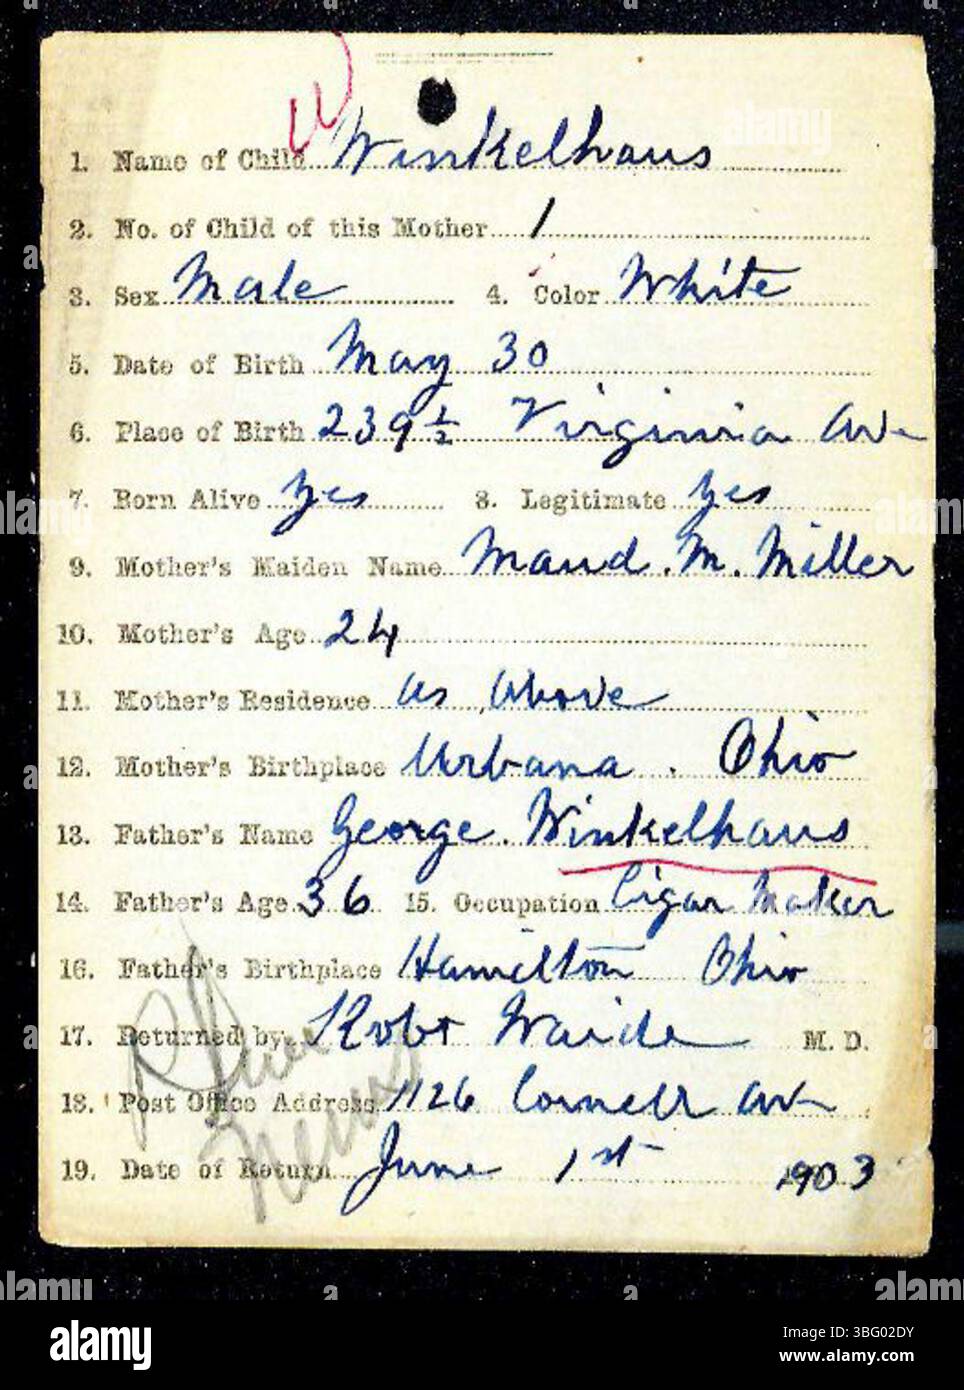 W
1. Name of Child Winkelhaus
2. No. of Child of this Mother 1
3. Sex Male 4. Color White
5. Date of Birth May 30
6. Place of Birth 239 1/2 Virginia Av
7. Born Alive Yes 8. Legitimate Yes
9. Mother's Maiden Name Maud. M. Miller
10. Mother's Age 24
11. Mother's Residence as above
12. Mother's Birthplace Urbana. Ohio
13. Father's Name George. Winkelhaus
14. Father's Age 36 15. Occupation Cigar Maker
16. Father's Birthplace Hamilton Ohio
17. Returned by Robt M. D.
18. Post Office Address 1126 Av
19. Date of Return June 1st 1903
alamy
Image ID: 3BG02DY
www.alamy.com